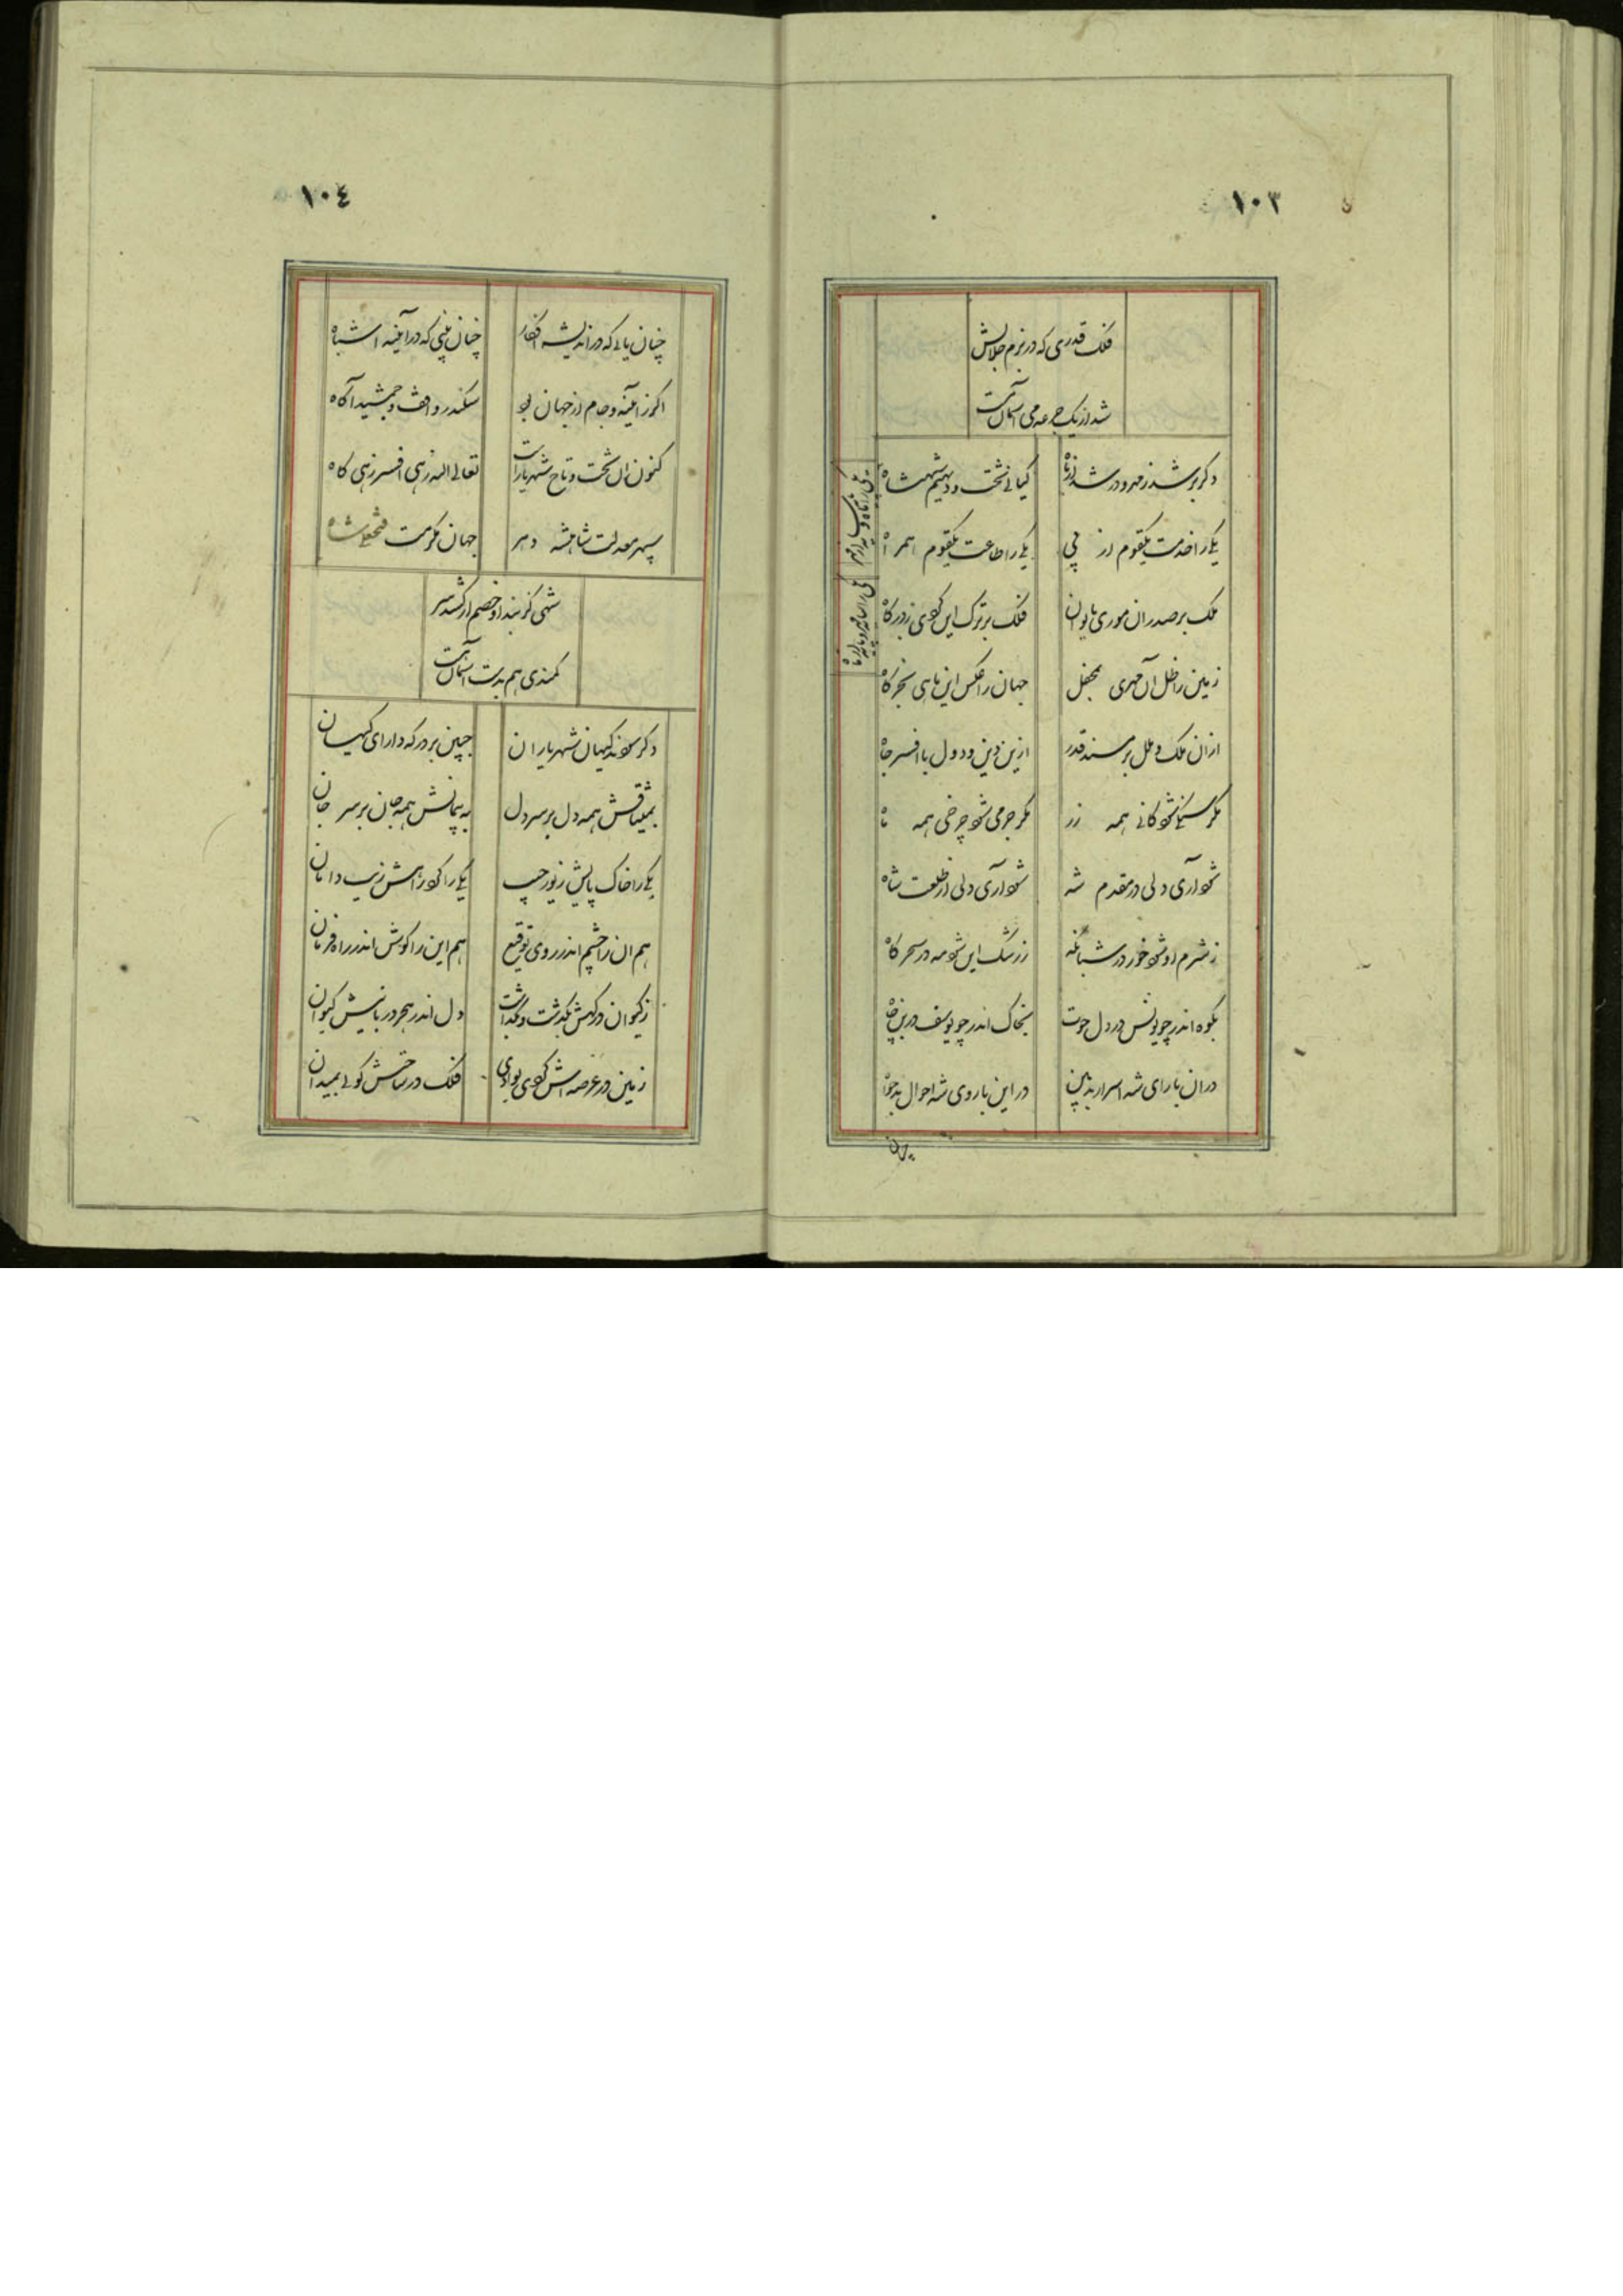 ۱۰۳
فلک قدری که در بزم جلالش
شد از یک جرعه می آسمان مست
دکر بر شد ز فر و در شد از جاه
کیانی تخت و دیهیم شهنشاه
یکی را خدمت یکقوم از پی
یکی را طاعت یکقوم همراه
ملک بر صدر ان موری بایوان
فلک بر ترک این کوی ز درکاه
زمین را ظل آن مهری بمحفل
جهان را عکس این ماهی بخرکاه
از ان ملک و ملل بر مسند قدر
ازین دین و دول با افسر جاه
مکر سنکی شو کانی همه زر
مکر جرمی شو چرخی همه ماه
شو آری ولی در مقدم شه
شو آری ولی از طلعت شاه
ز شرم او شو خور در شبانکه
ز رشک این شو مه در سحرکاه
بکوه اندر چو یونس در دل حوت
بخاک اندر چو یوسف در بن چاه
در ان با رای شه اسرار بد بین
در این با روی شه احوال بدخواه
چنان
۱۰٤
چنان یابی که در اندیشه افکار
چنان بینی که در آیینه اشباه
اکر ز ایینه و جام از جهان بو
سکندر واقف و جمشید آکاه
کنون ان تخت و تاج شهریار است
تعالی الله زهی افسر زهی کاه
سپهر معدلت شاهنشه دهر
جهان مکرمت فتحعلی شاه
شهی کز بند او خصم ار کشد سر
کمندی هم بدست آسمان هست
دکر سوند کیهان شهریاران
جبین بر درکه دارای کیهان
بمیثاقش همه دل بر سر دل
به پیمانش همه جان بر سر جان
یکی را خاک پایش زیور جیب
یکی را کرد راهش زیب دامان
هم ان را چشم اندر روی توقیع
هم این را کوش اندر راه فرمان
ز کیوان درکهش بکذشت و بکذاشت
دل اندر هجر دربانیش کیوان
زمین در عرصه اش کوی بوادی
فلک در ساحتش کوئی بمیدان